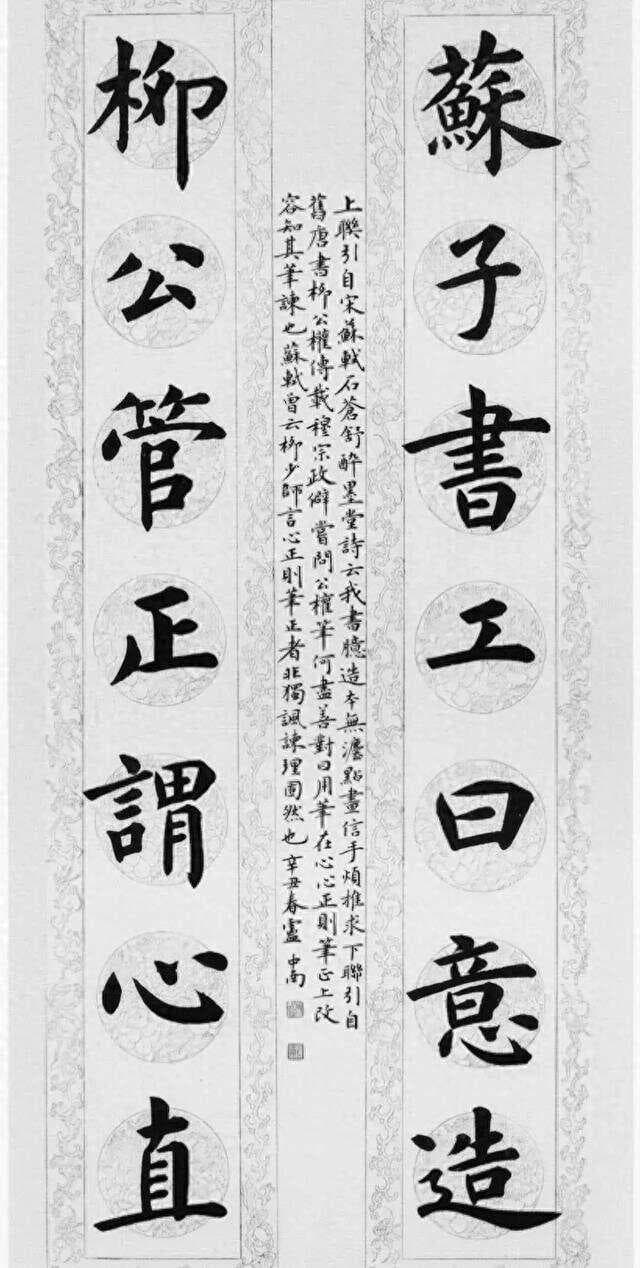 蘇子書工曰意造
上聯引自宋蘇軾石蒼舒醉墨堂詩云我書臆造本無灋點畫信手煩推求下聯引自
舊唐書柳公權傳載穆宗政僻嘗問公權筆何盡善對曰用筆在心心正則筆正上改
容知其筆諫也蘇軾曾云柳少師言心正則筆正者非獨諷諫理固然也辛丑春盧中南
柳公管正謂心直